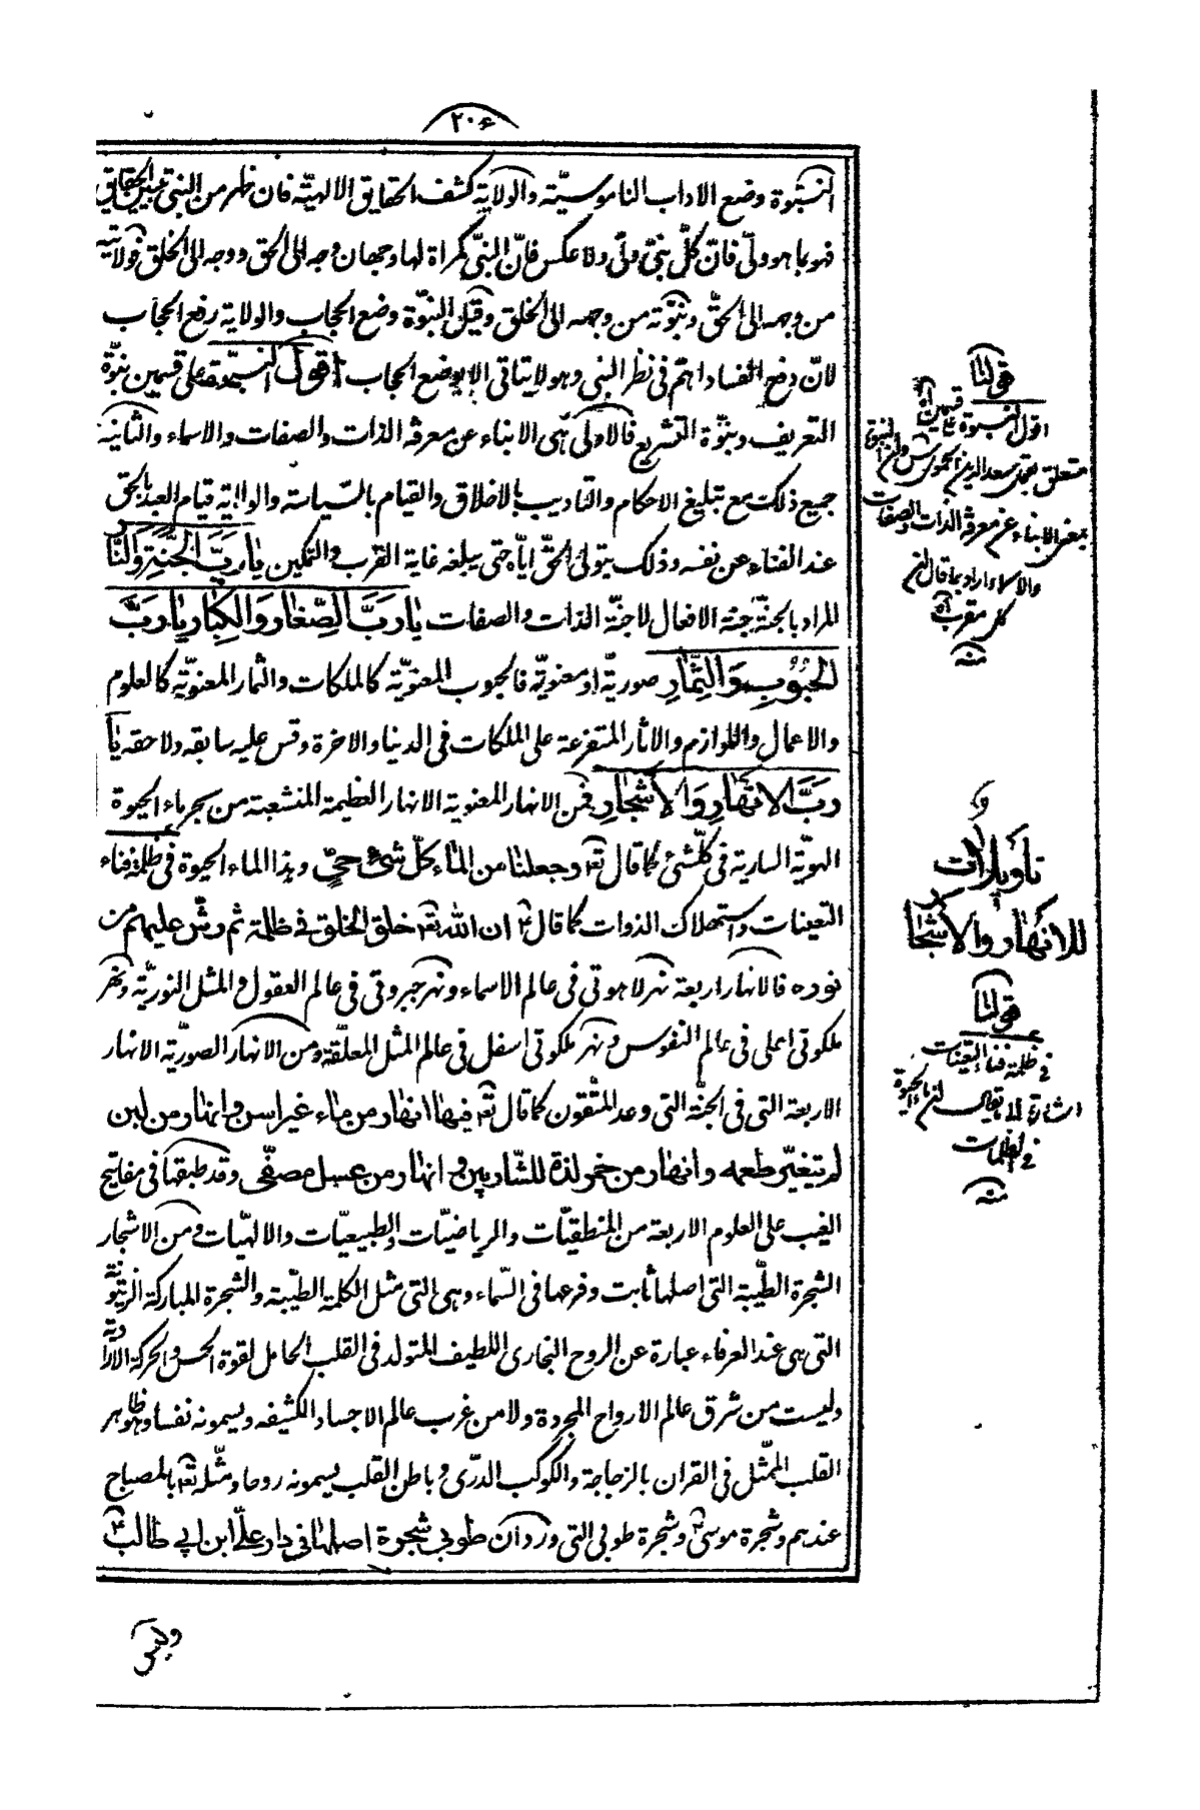 ٢٠٤
النبوة وضع الاداب الناموسيّة والولاية كشف الحقايق الالهيّة فان ظهر من النبى تبيين الحقايق
فهو بما هو ولىّ فانّ كلّ نبىّ ولىّ ولا عكس فانّ النبىّ كمراة لها وجهان وجه الى الحق ووجه الى الخلق فولايته
من وجهه الى الحقّ ونبوّته من وجهه الى الخلق وقيل النبوّة وضع الحجاب والولاية رفع الحجاب
لانّ دفع الفساد اهمّ فى نظر النبى وهو لا يتاتى الا بوضع الحجاب اقول النبوة على قسمين نبوّة
التعريف ونبوّة التشريع فالاولى هى الانباء عن معرفة الذات والصفات والاسماء والثانية
جميع ذلك مع تبليغ الاحكام والتاديب بالاخلاق والقيام بالسّياسة والولاية قيام العبد بالحق
عند الفناء عن نفسه وذلك بتولى الحقّ ايّاه حتى يبلغه غاية القرب والتمكين يا رَبَّ الجَنَّةِ وَالنّارِ
المراد بالجنّة جنة الافعال لا جنّة الذات والصفات يا رَبَّ الصِّغارِ وَالكِبارِ يا رَبَّ
الحُبُوبِ وَالثِّمارِ صوريّة او معنويّة فالحبوب المعنويّة كالملكات والثمار المعنويّة كالعلوم
والاعمال واللوازم والاثار المتفرعة على الملكات فى الدنيا والاخرة وقس عليه سابقه ولاحقه يا
رَبَّ الانهارِ وَالاَشجارِ فمن الانهار المعنوية الانهار العظيمة المنشعبة من بحر ماء الحيوة
الهويّة السارية فى كلّ شئ كما قال تع وجعلنا من الماء كلّ شئ حىّ وبذا الماء الحيوة فى ظلمة فناء
التعينات واستهلاك الذوات كما قال ع ان الله تع خلق الخلق فى ظلمة ثم رشّ عليهم من
نوره فالانهار اربعة نهر لاهوتى فى عالم الاسماء ونهر جبروتى فى عالم العقول والمثل النوريّة ونهر
ملكوتى اعلى فى عالم النفوس ونهر ملكوتى اسفل فى عالم المثل المعلّقة ومن الانهار الصوريّة الانهار
الاربعة التى فى الجنّة التى وعد المتّقون كما قال تع فيها انهار من ماء غير اسن وانهار من لبن
لم يتغيّر طعمه وانهار من خمر لذة للشّاربين وانهار من عسل مصفّى وقد طبقها فى مفاتيح
الغيب على العلوم الاربعة من المنطقيّات والرياضيّات والطبيعيّات والالهيّات ومن الاشجار
الشجرة الطّيبة التى اصلها ثابت وفرعها فى السّماء وهى التى مثل الكلمة الطيّبة والشجرة المباركة الزيتونة
التى هى عند العرفاء عبارة عن الروح البخارى اللطيف المتولد فى القلب الحامل لقوة الحس والحركة الارادية
وليست من شرق عالم الارواح المجردة ولا من غرب عالم الاجساد الكشيفه ويسمونه نفسا وهو ظاهر
القلب الممثّل فى القران بالزجاجة والكوكب الدرّى وباطن القلب يسمونه روحا ومثّله تع بالمصباح
عندهم وشجرة موسى ع وشجرة طوبى التى ورد ان طوبى شجرة اصلها فى دار علىّ ابن ابى طالب ع
وليس
قولنا
اقول النبوة على قسمين اه
متعلق بقول سعد الدين الحموى
بمعنى الانباء عن معرفة الذات والصفات
والاسماء
كل مقرب اه
منه
تاويلات
للانهار والاشجار
قولنا
فى ظلمة فناء التعينات
اشارة الى
فى الظلمات
منه